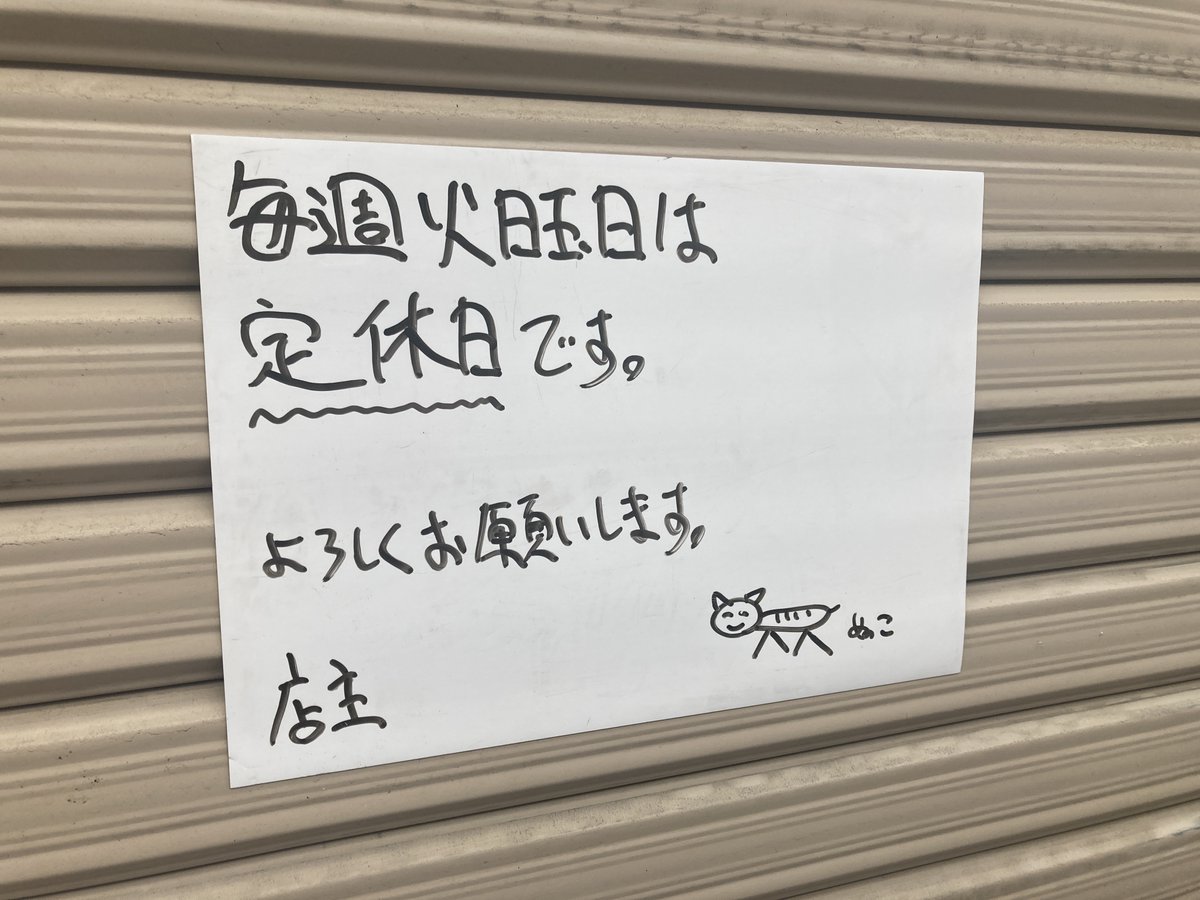 毎週火曜日は
定休日です。
よろしくお願いします。
ぬこ
店主